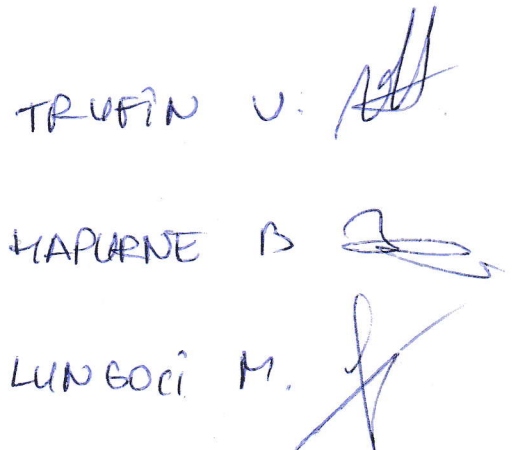 TRUFIN V.
HAPURNE B
LUNGOCI M.